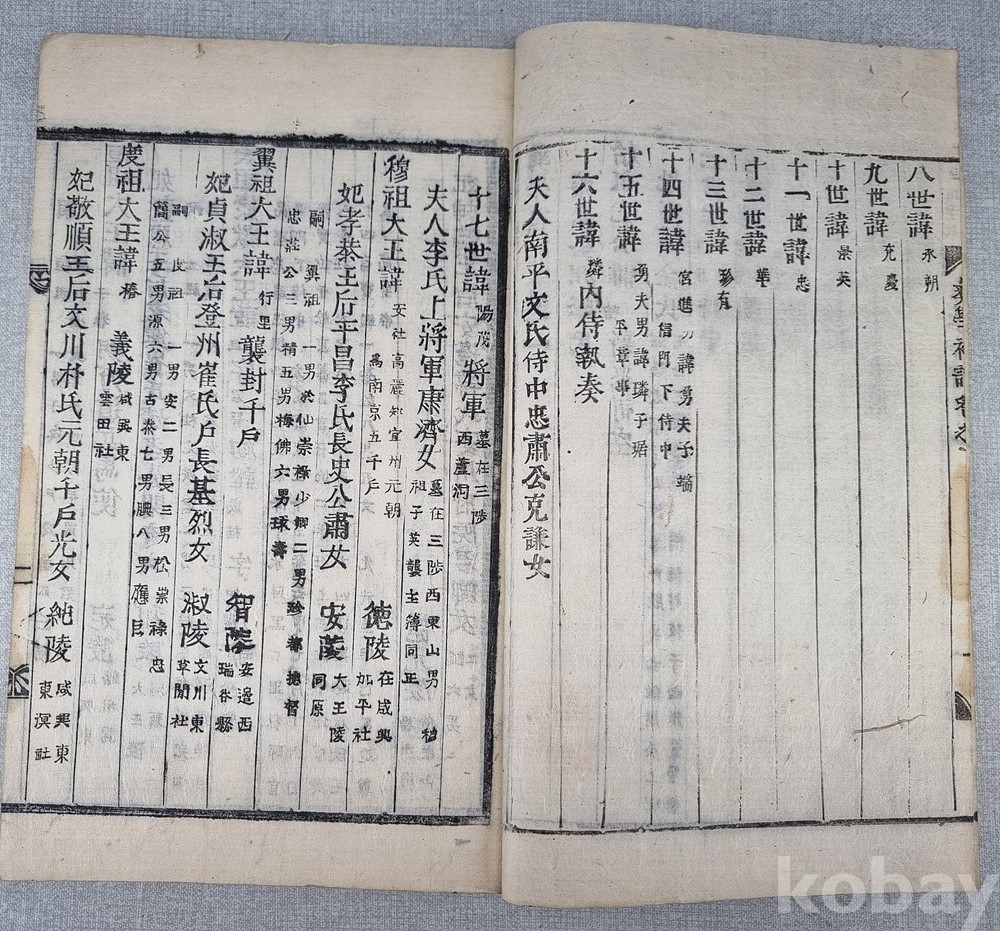 八世諱 永朝
九世諱 充慶
十世諱 景英
十一世諱 忠
十二世諱 華
十三世諱 珍有
十四世諱 宮進 男諱勇夫子璘 信門下侍中
十五世諱 勇夫男諱璘子琚 平章事
十六世諱 璘內侍執奏
夫人南平文氏侍中忠肅公克謙女
十七世諱 陽茂 將軍 墓在三陟西蘆洞
夫人李氏上將軍康濟女 墓在三陟西東山男穆祖子英襲主簿同正
穆祖大王諱 安社高麗知宜州元朝爲南京五千戶 德陵 在咸興加平社
妃孝恭王后平昌李氏長史公肅女 安陵 大王陵同原
嗣翼祖一男於仙崇祿少卿二男珍都摠督
忠莊公三男精五男梅佛六男球壽
翼祖大王諱 行里 襲封千戶 智陵 安邊西瑞谷縣
妃貞淑王后登州崔氏戶長基烈女 淑陵 文川東草閒社
嗣度祖一男安二男長三男松崇祿忠
簡公五男源六男古泰七男腆八男應臣
度祖大王諱 椿 義陵 咸興東雲田社
妃敬順王后文川朴氏元朝千戶光女 純陵 咸興東溟社
kobay